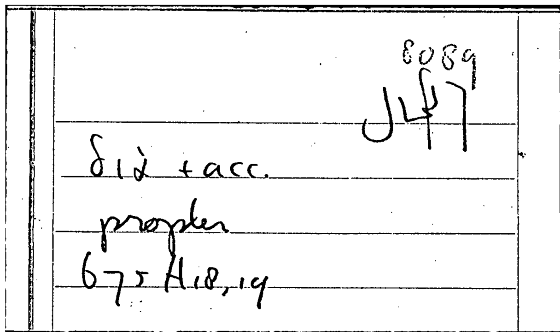 8089
J47
διὰ + acc.
propter
675 A18,19